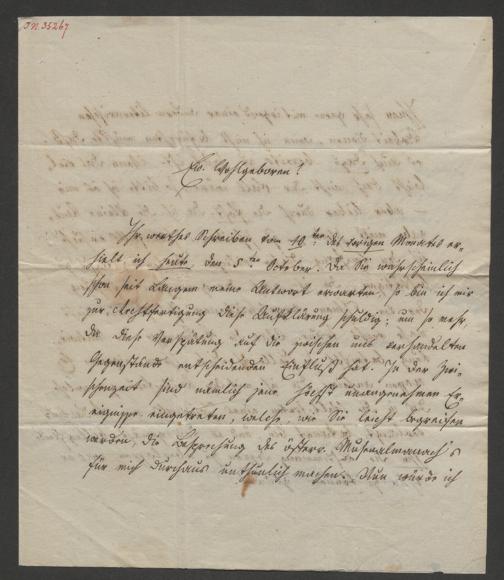 I.N. 35267
Ew. Wohlgeboren!
Ihr werthes Schreiben vom 10ten des vorigen Monats er-
hielt ich heute den 5ten October. Da Sie wahrscheinlich
schon seit Langem meine Antwort erwarten, so bin ich mir
zur Rechtfertigung diese Aufklärung schuldig; um so mehr
da diese Verspätung auf die zwischen uns verhandelten
Gegenstände entscheidenden Einfluß hat. In der Zwi-
schenzeit sind nämlich jene höchst unangenehmen Er-
eignisse eingetreten, welche, wie Sie leicht begreifen
werden, die Besprechung des österr. Musenalmanach's
für mich durchaus unthunlich machen. Nun würde ich